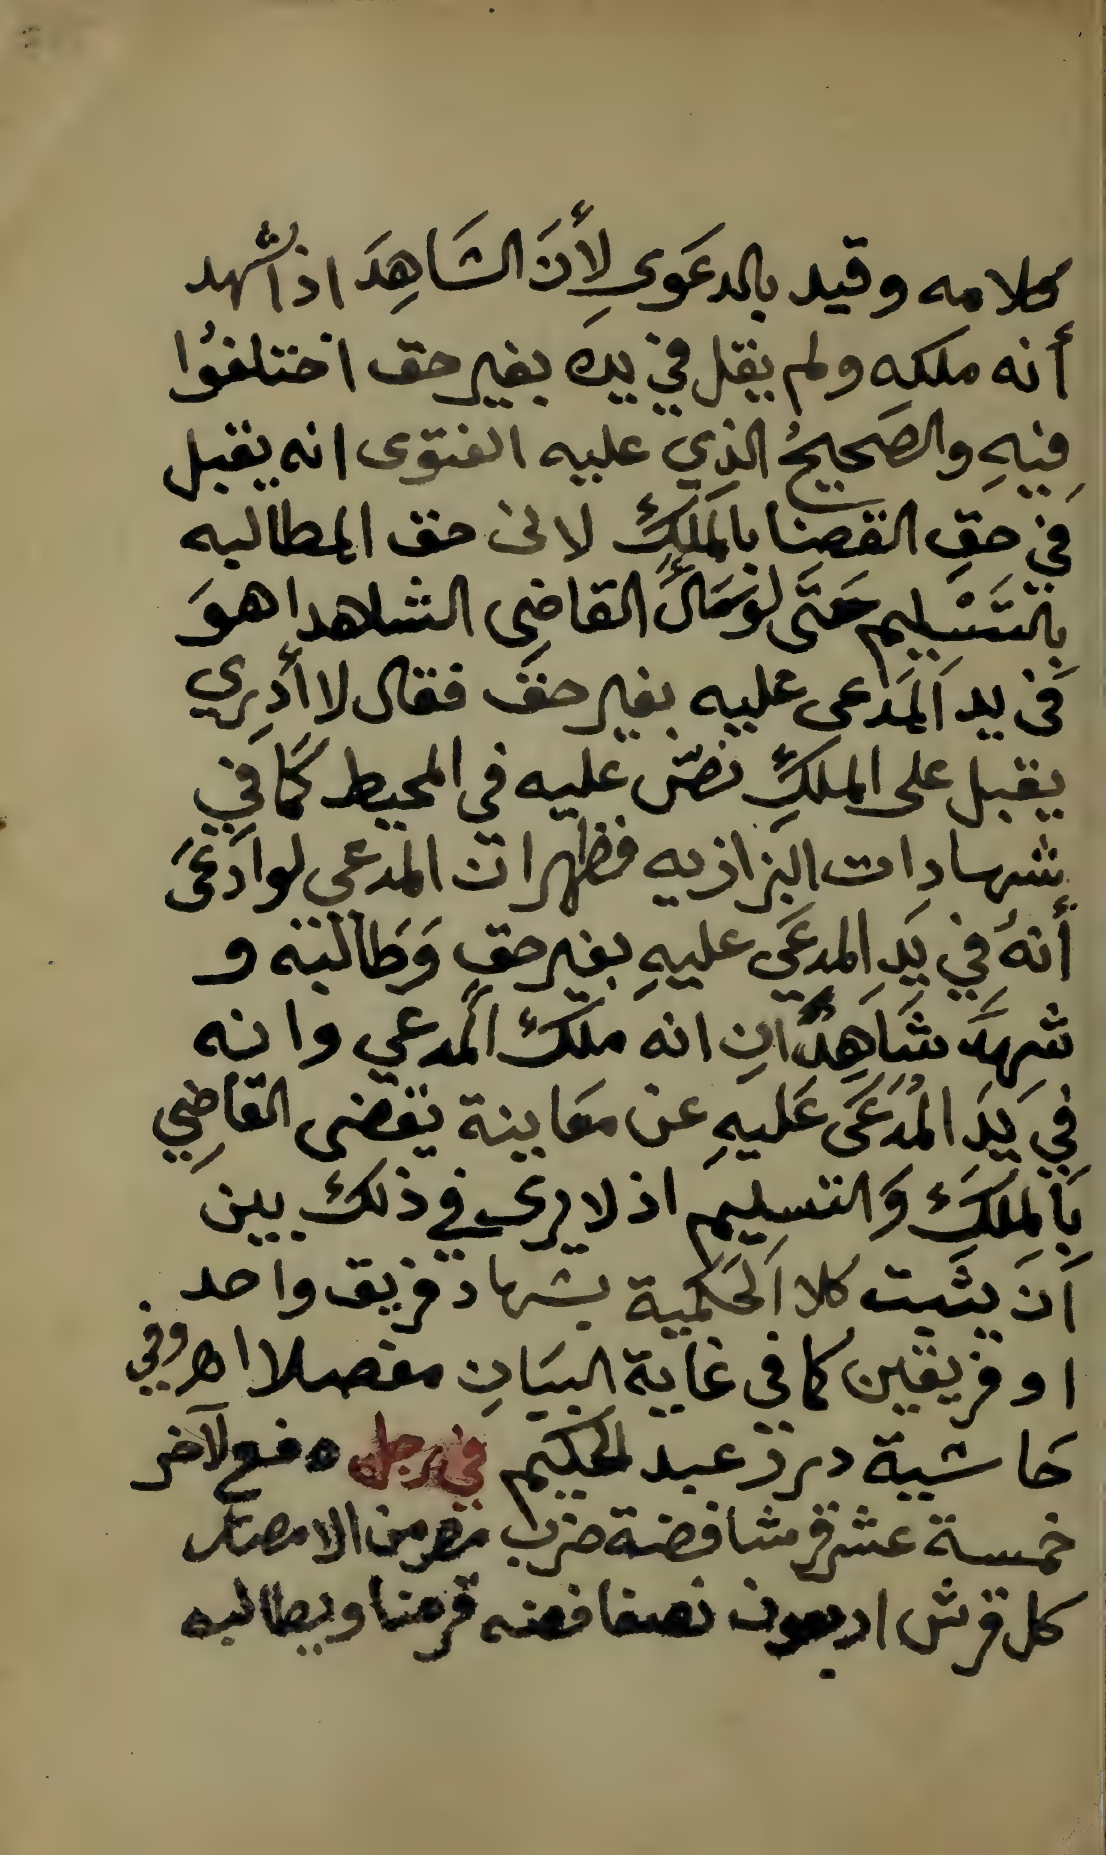 كلامه وقيد بالدعَوى لِأَنَ الشَاهِدَ اذا شهد
أنه ملكه ولم يقل في يده بغير حق اختلفوُا
فِيهِ والصَحيحُ الذِي عليه الفتوى انه يقبل
في حقِ القضا بالمَلكِ لا فى حق المطالبه
بِالتَسْلِيم حَتَى لوسَألَ القاضِى الشاهد اهوَ
فى يد المَدعى عليه بغير حقَ فقال لا أدرِي
يقبل على الملكِ نصّ عليه فى المحيط كمَا في
شهادات البزازيه فظهر ان المدعى لو ادعَىَ
أنهُ في يَدِ المدعَى عليهِ بغير حقٍ وَطَالبَه و
شهدَ شَاهِدَانِ انه ملَكَ المدعي وانه
في يَدَ المُدَعَى عَليهِ عن معَاينة يقضى القاضِي
بِالملَكَ وَالتسليم اذ لا فرق في ذلك بين
اَن يثبَت كلا الحَكمية بشهاد فريق واحد
او فريقين كما فى غاية البيَانِ مفصلا اهـ وفي
حَاشية درر عبد الحكيم في رجل دفع لآخر
خمسة عشر قرشا فضة ضرب مصر من الامصار
كل قرش اربعون نصفا فضه قرضا ويطالبه